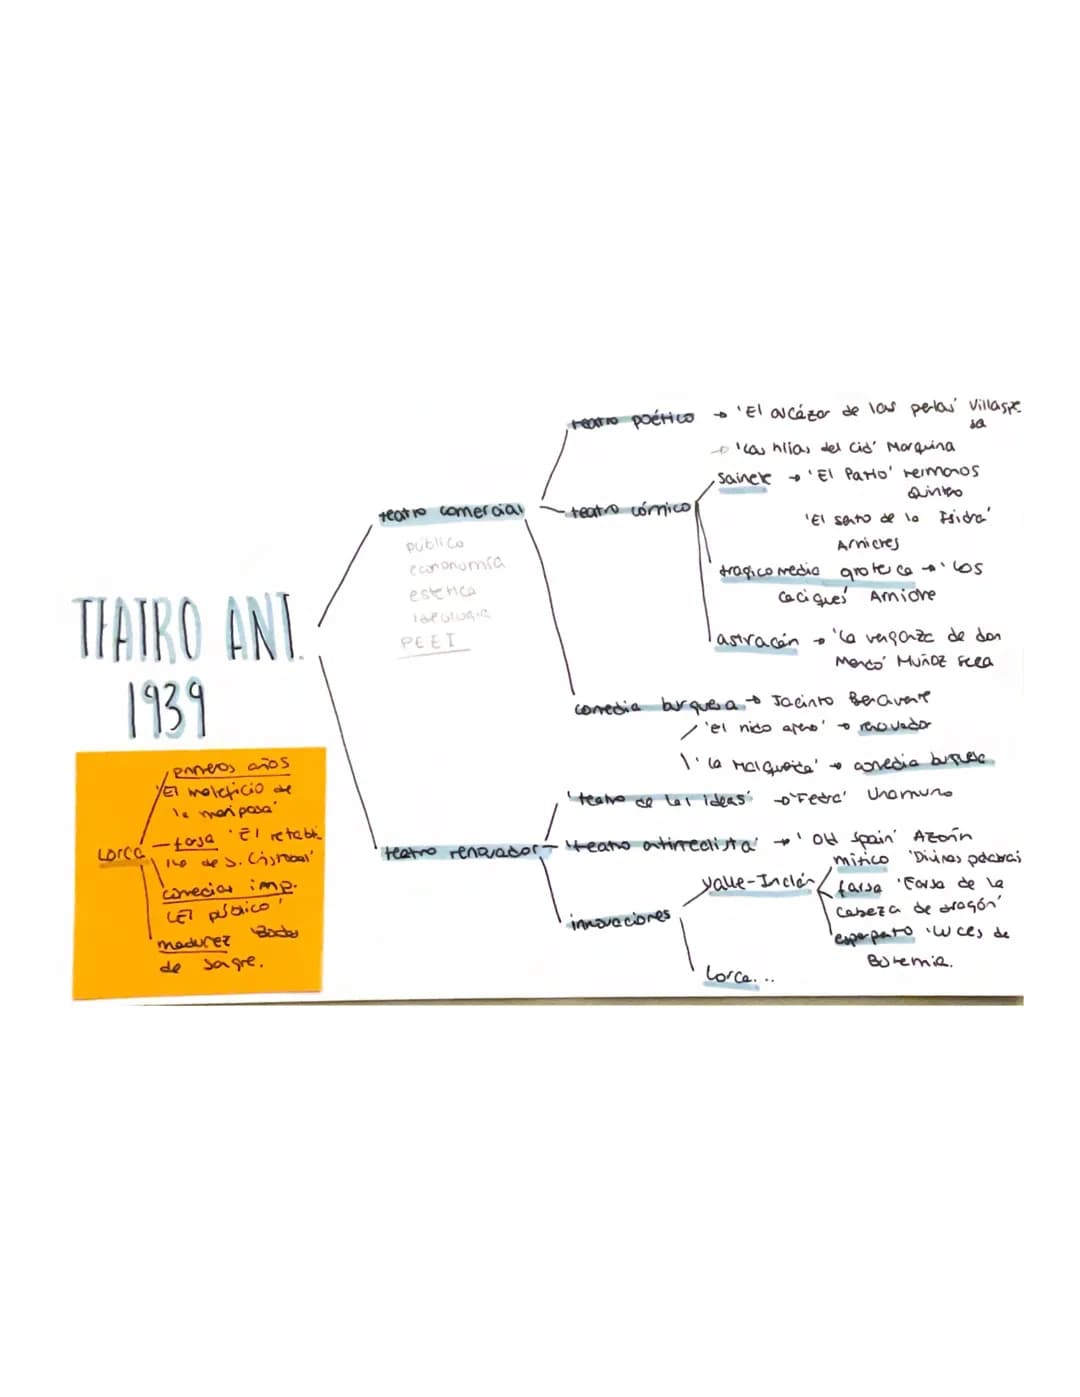 TEATRO ANT.
1939
teatro comercial
público
econonomía
estetica
ideologia
PEEI
teatro poético → 'El alcázar de las perlas' Villaspe
sa
→ 'Las hijas del Cid' Marquina
teatro cómico
sainete → 'El Patio' hermanos
Quintero
'El santo de la Isidra'
Arniches
tragicomedia grotesca → 'Los
caciques' Arniche
astracán → 'La venganza de don
Mendo' Muñoz Seca
comedia burguesa → Jacinto Benavente
'el nido ajeno' → renovador
'La Malquerida' → comedia burguesa
teatro renovador
'teatro de las ideas' → 'Fedra' Unamuno
'teatro antirrealista' → 'Old Spain' Azorín
innovaciones
Valle-Inclán
mítico 'Divinas palabras
farsa 'Farsa de la
cabeza de dragón'
esperpento 'Luces de
Bohemia.
Lorca...
Lorca
primeros años
'El maleficio de
la mariposa'
farsa 'El retabl
illo de S. Cristobal'
comedias imp.
'El público'
madurez 'Bodas
de sangre.